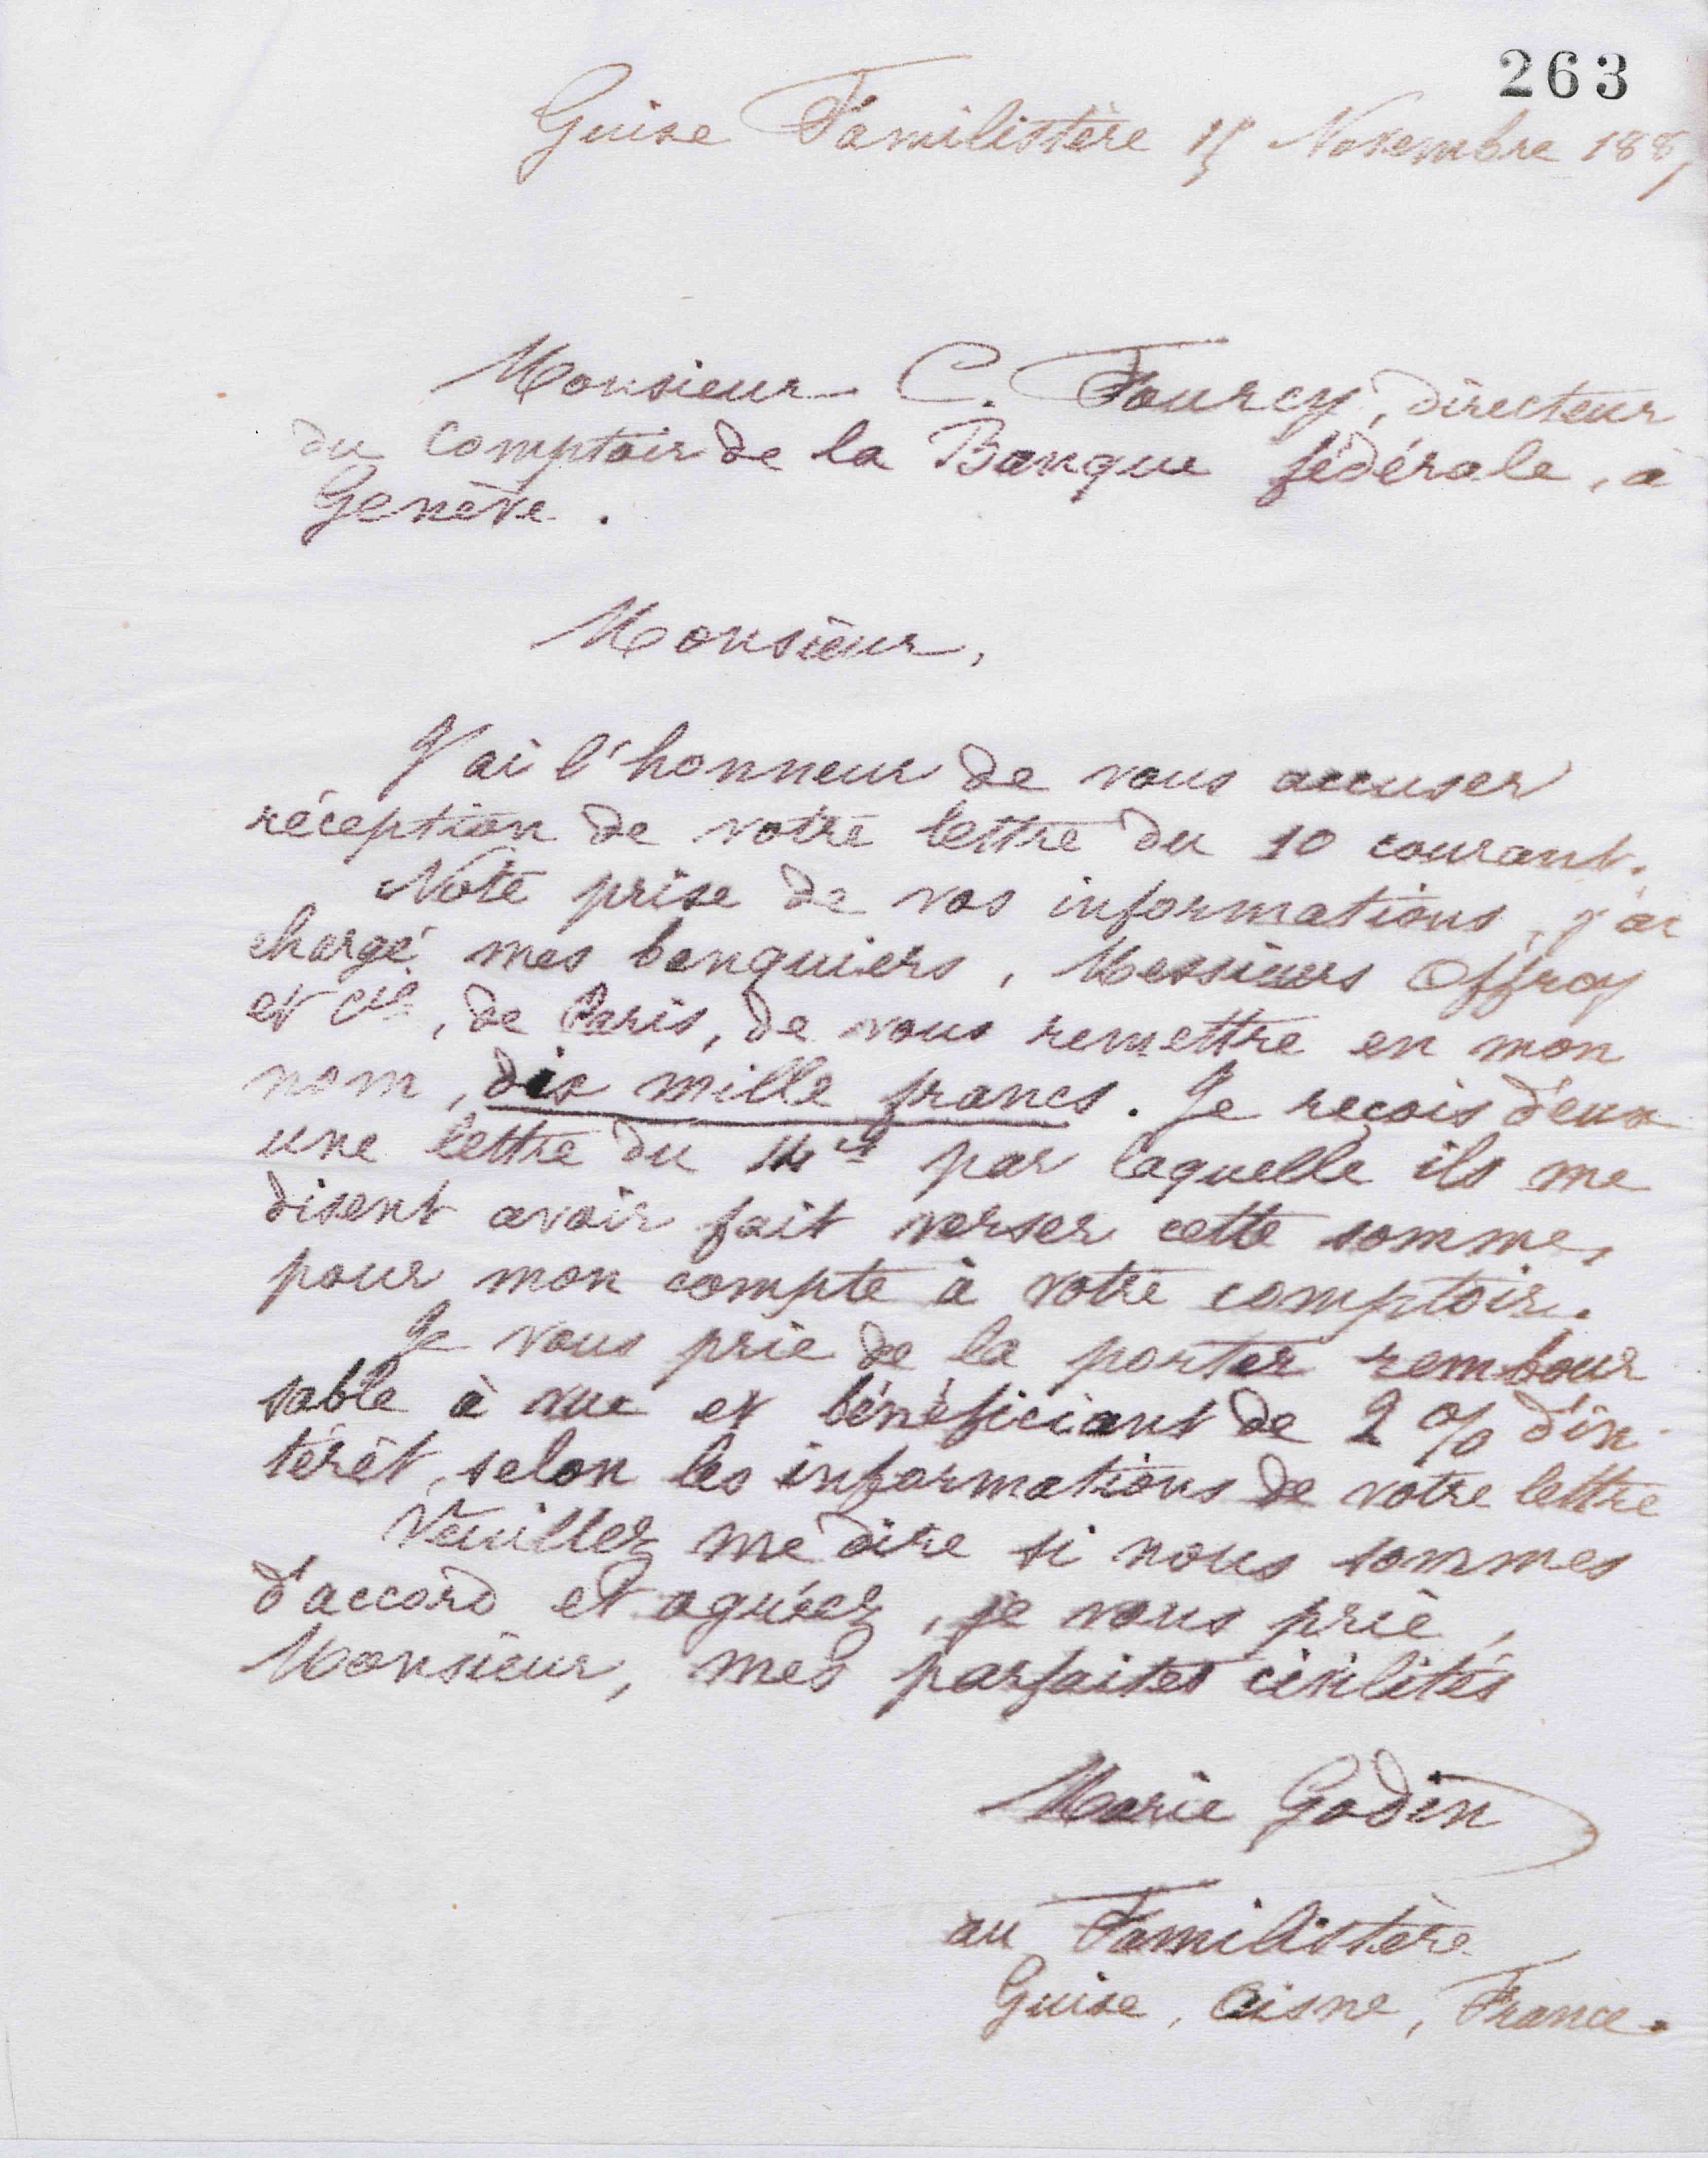 263
Guise Familistère 15 Novembre 188
Monsieur C. Fourcy, directeur
du Comptoir de la Banque fédérale, à
Genève.
Monsieur,
J'ai l'honneur de vous accuser
réception de votre lettre du 10 courant.
Note prise de vos informations, j'ai
chargé mes banquiers, Messieurs Offroy
et Cie, de Paris, de vous remettre en mon
nom, dix mille francs. Je reçois d'eux
une lettre du 14 ct par laquelle ils me
disent avoir fait verser cette somme,
pour mon compte à votre comptoir.
Je vous prie de la porter rembour
sable à vue et bénéficiant de 2 % d'in-
térêt, selon les informations de votre lettre
Veuillez me dire si nous sommes
d'accord et agréez, je vous prie,
Monsieur, mes parfaites civilités
Marie Godin
au Familistère
Guise, Aisne, France.